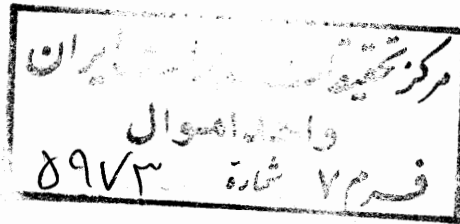 مرکز تحقیقات ایران
واحد اموال
فرم ۷ شمارهٔ ۵۹۷۳